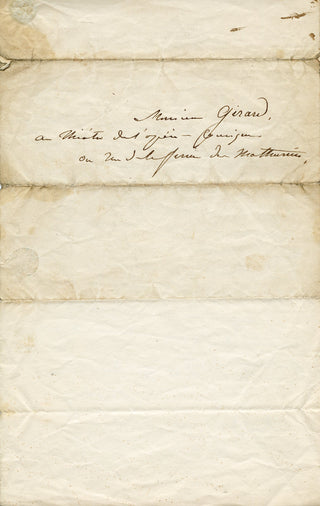 Monsieur Gérard,
au théâtre de l'opéra-comique
ou rue de la ferme des Mathurins,